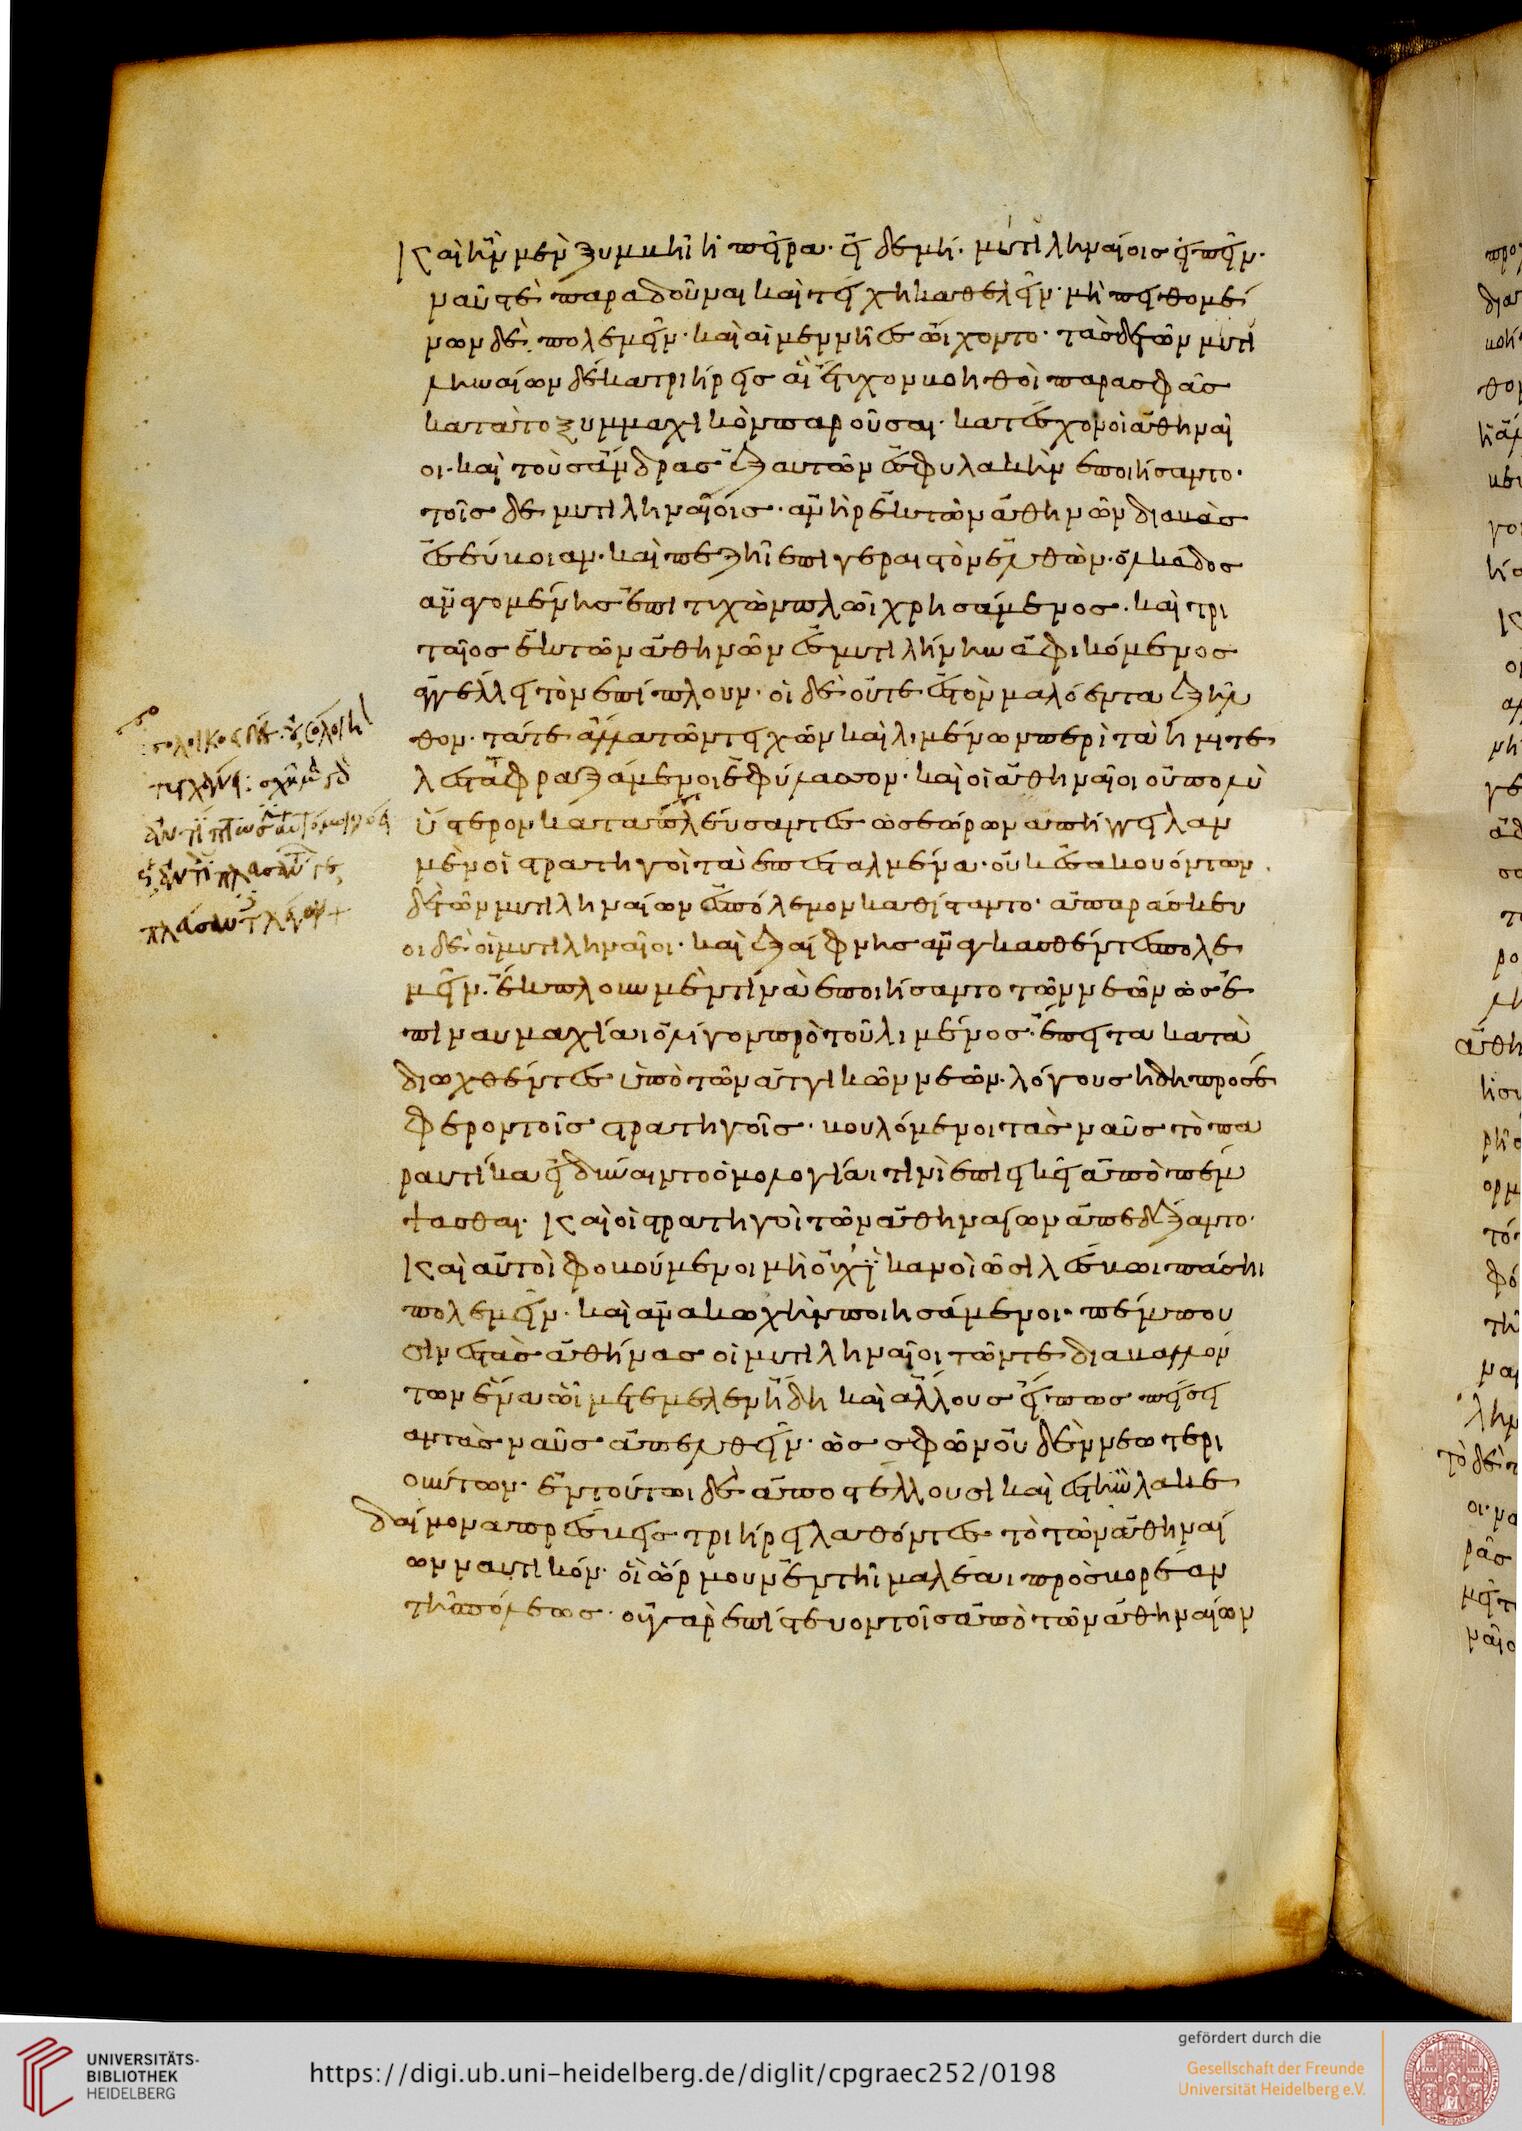 Καὶ ἢν μὲν ξυμβῆι ἡ πεῖρα· εἰ δὲ μή· μυτιληναίοις εἰπεῖν·
ναῦς τὲ παραδοῦναι καὶ τείχη καθελεῖν· μὴ πειθομέ
νων δὲ πολεμεῖν· καὶ αἱ μὲν νῆες ὤιχοντο· τὰς δὲ τῶν μυτι
ληναίων δέκα τριήρεις αἳ ἔτυχον βοηθοὶ παρὰ σφᾶς
κατὰ τὸ ξυμμαχικὸν παροῦσαι· κατέσχον οἱ ἀθηναῖ
οι· καὶ τοὺς ἄνδρας ἐξ αυτῶν ἐς φυλακὴν εποιήσαντο·
τοῖς δε μυτιληναίοις· ἀνὴρ ἐκ τῶν ἀθηνῶν διαβὰς
ἐς εύβοιαν· καὶ πεζῆι επι γεραιστὸν ἐλθὼν· ὁλκάδος
ἀναγομένης ἐπιτυχὼν πλῶι χρησάμενος· καὶ τρι
ταῖος ἐκ τῶν ἀθηνῶν ἐς μυτιλήνην ἀφικόμενος
ἀγγέλλει τὸν επίπλουν· οἱ δὲ οὔτε ἐς τὸν μαλόεντα ἐξῆλ
θον· τά τε ἄλλα τῶν τειχῶν καὶ λιμένων περὶ τὰ ἡμιτέ
λεστα φραξάμενοι ἐφύλασσον· καὶ οἱ ἀθηναῖοι οὐ πολὺ
ὕστερον καταπλεύσαντες ὡς εώρων ἀπήγγειλαν
μὲν οἱ στρατηγοὶ τὰ επεσταλμένα· οὐκ ἐσακουόντων
δὲ τῶν μυτιληναίων ἐς πόλεμον καθίσταντο· ἀπαράσκευ
οι δὲ οἱ μυτιληναῖοι· καὶ ἐξαίφνης ἀναγκασθέντες πολε
μεῖν· ἔκπλουν μέν τινα εποιήσαντο τῶν νεῶν ὡς ἐ
πι ναυμαχίαι ὀλίγον πρὸ τοῦ λιμένος· ἔπειτα κατα
διωχθέντες ὑπὸ τῶν ἀττικῶν νεῶν· λόγους ἤδη προσέ
φερον τοῖς στρατηγοῖς· βουλόμενοι τὰς ναῦς τὸ πα
ραυτίκα εἰ δύναιντο ὁμολογίαι τινὶ επιεικεῖ ἀποπέμ
ψασθαι· Καὶ οἱ στρατηγοὶ τῶν ἀθηναίων ἀπεδέξαντο·
Καὶ αὐτοὶ φοβούμενοι μὴ οὐχ ἱκανοὶ ὦσι λέσβωι πάσηι
πολεμεῖν· καὶ ἀνακωχὴν ποιησάμενοι· πέμπου
σιν ἐς τὰς ἀθήνας οἱ μυτιληναῖοι τῶν τε διαβαλλόν
των ἕνα ὧι μετέμελεν ἤδη καὶ ἄλλους εἴ πως πείσει
αν τὰς ναῦς ἀπελθεῖν· ὡς σφῶν οὐδὲν νεωτερι
ούντων· ἐν τούτωι δὲ ἀποστέλλουσι καὶ ἐς τὴν λακε
δαίμονα πρέσβεις τριήρει λαθόντες τὸ τῶν ἀθηναί
ων ναυτικόν· οἳ ὥρμουν ἐν τῆι μαλέαι πρὸς βορέαν
τῆς πόλεως· οὐ γὰρ επίστευον τοῖς ἀπὸ τῶν ἀθηναίων
UNIVERSITÄTS-
BIBLIOTHEK
HEIDELBERG
https://digi.ub.uni-heidelberg.de/diglit/cpgraec252/0198
gefördert durch die
Gesellschaft der Freunde
Universität Heidelberg e.V.